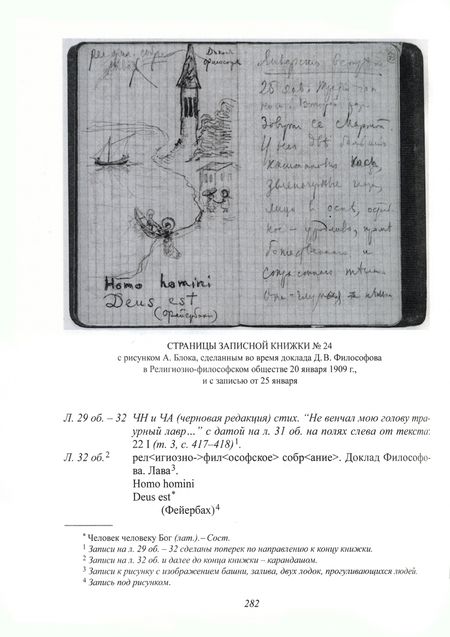 рел. фил. собр.
Доклад
Философова
Январская встреча
25 янв.
Зовут ее Мартой
У нея две большие
каштановые косы,
зелено-черные глаза,
лицо в оспе, осталь-
ное – уродливо, кроме
божественного и
страстного тела.
Она – глупая
Homo homini
Deus est
(Фейербах)
СТРАНИЦЫ ЗАПИСНОЙ КНИЖКИ № 24
с рисунком А. Блока, сделанным во время доклада Д. В. Философова
в Религиозно-философском обществе 20 января 1909 г.,
и с записью от 25 января
Л. 29 об. – 32 ЧН и ЧА (черновая редакция) стих. “Не венчал мою голову тра-
урный лавр...” с датой на л. 31 об. на полях слева от текста:
22 I (т. 3, с. 417–418)1.
Л. 32 об.2 рел<игиозно->фил<ософское> собр<ание>. Доклад Философо-
ва. Лава3.
Homo homini
Deus est*
(Фейербах)4
* Человек человеку Бог (лат.). – Сост.
1 Записи на л. 29 об. – 32 сделаны поперек по направлению к концу книжки.
2 Записи на л. 32 об. и далее до конца книжки – карандашом.
3 Записи к рисунку с изображением башни, залива, двух лодок, прогуливающихся людей.
4 Запись под рисунком.
282